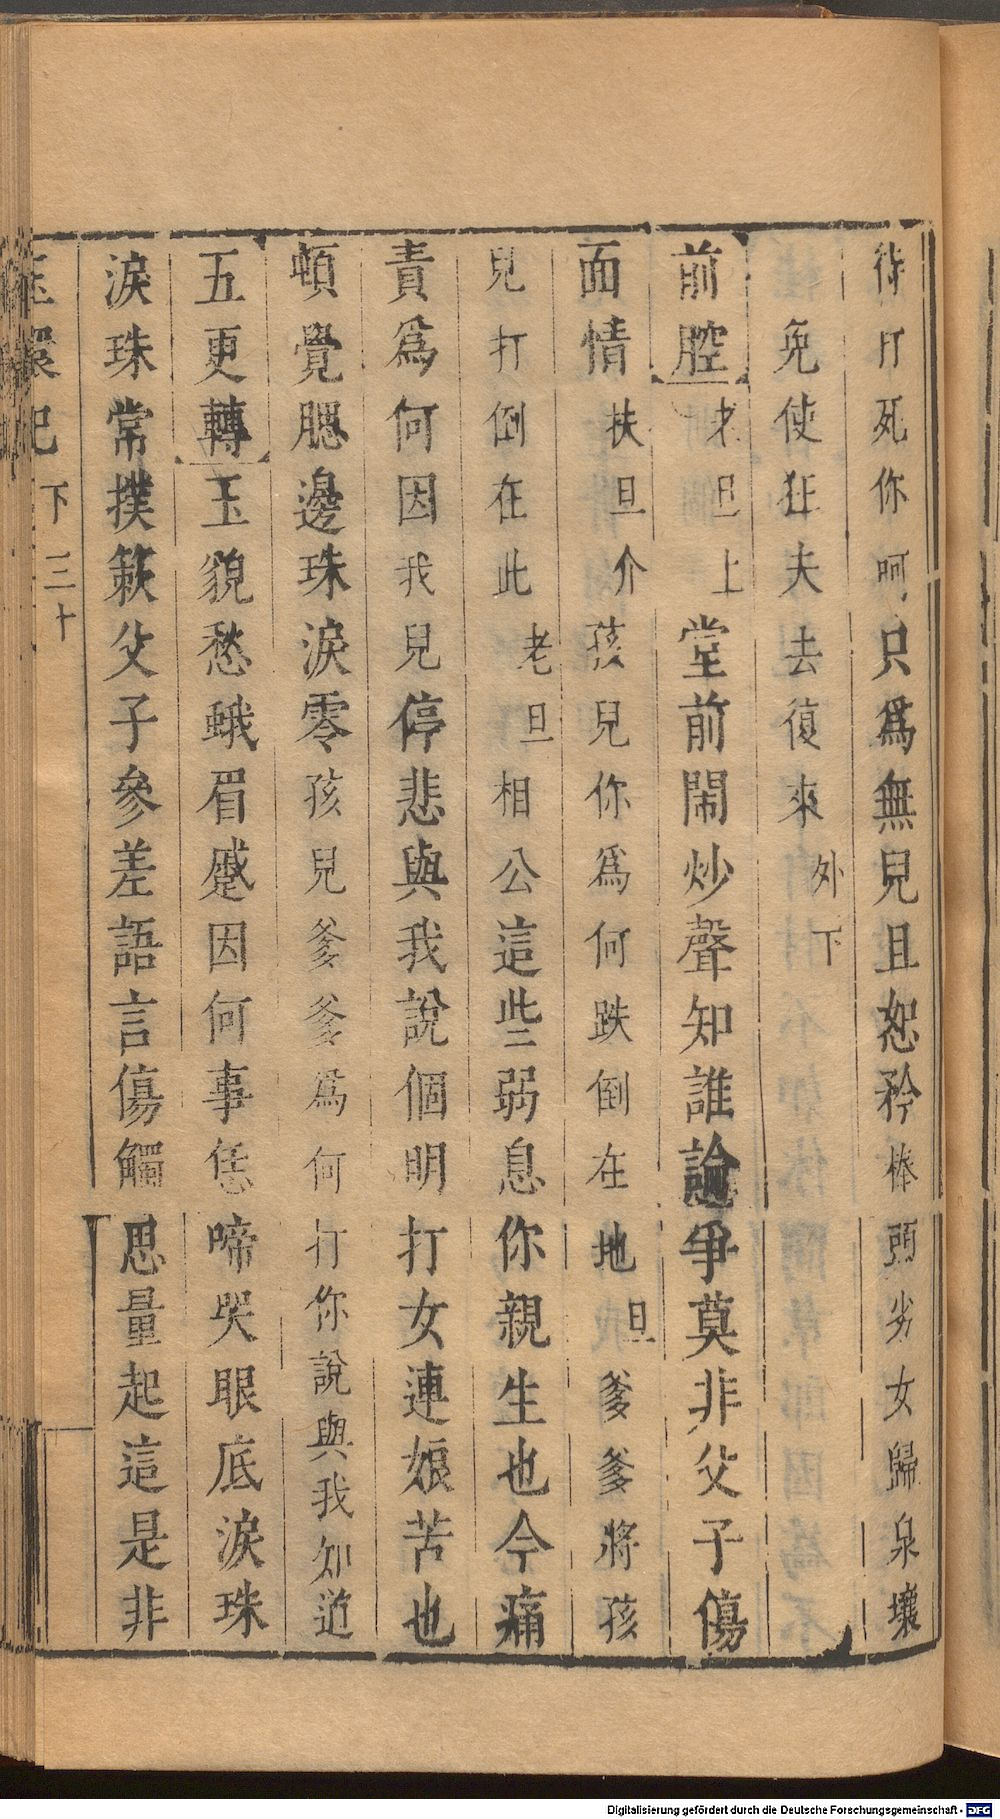 待打死你呵只爲無兒且恕矜棒頭劣女歸泉壤
免使狂夫去復來外下
前腔老旦上堂前鬧炒聲知誰論爭莫非父子傷
面情扶旦介孩兒你爲何跌倒在地旦爹爹將孩
兒打倒在此老旦相公這些弱息你親生也今痛
責爲何因我兒停悲與我說個明打女連娘苦也
頓覺腮邊珠淚零孩兒爹爹爲何打你說與我知道
五更轉玉貌愁蛾眉蹙因何事恁啼哭眼底淚珠
淚珠常撲簌父子參差語言傷觸思量起這是非
玉環記 下 三十
Digitalisierung gefördert durch die Deutsche Forschungsgemeinschaft - DFG